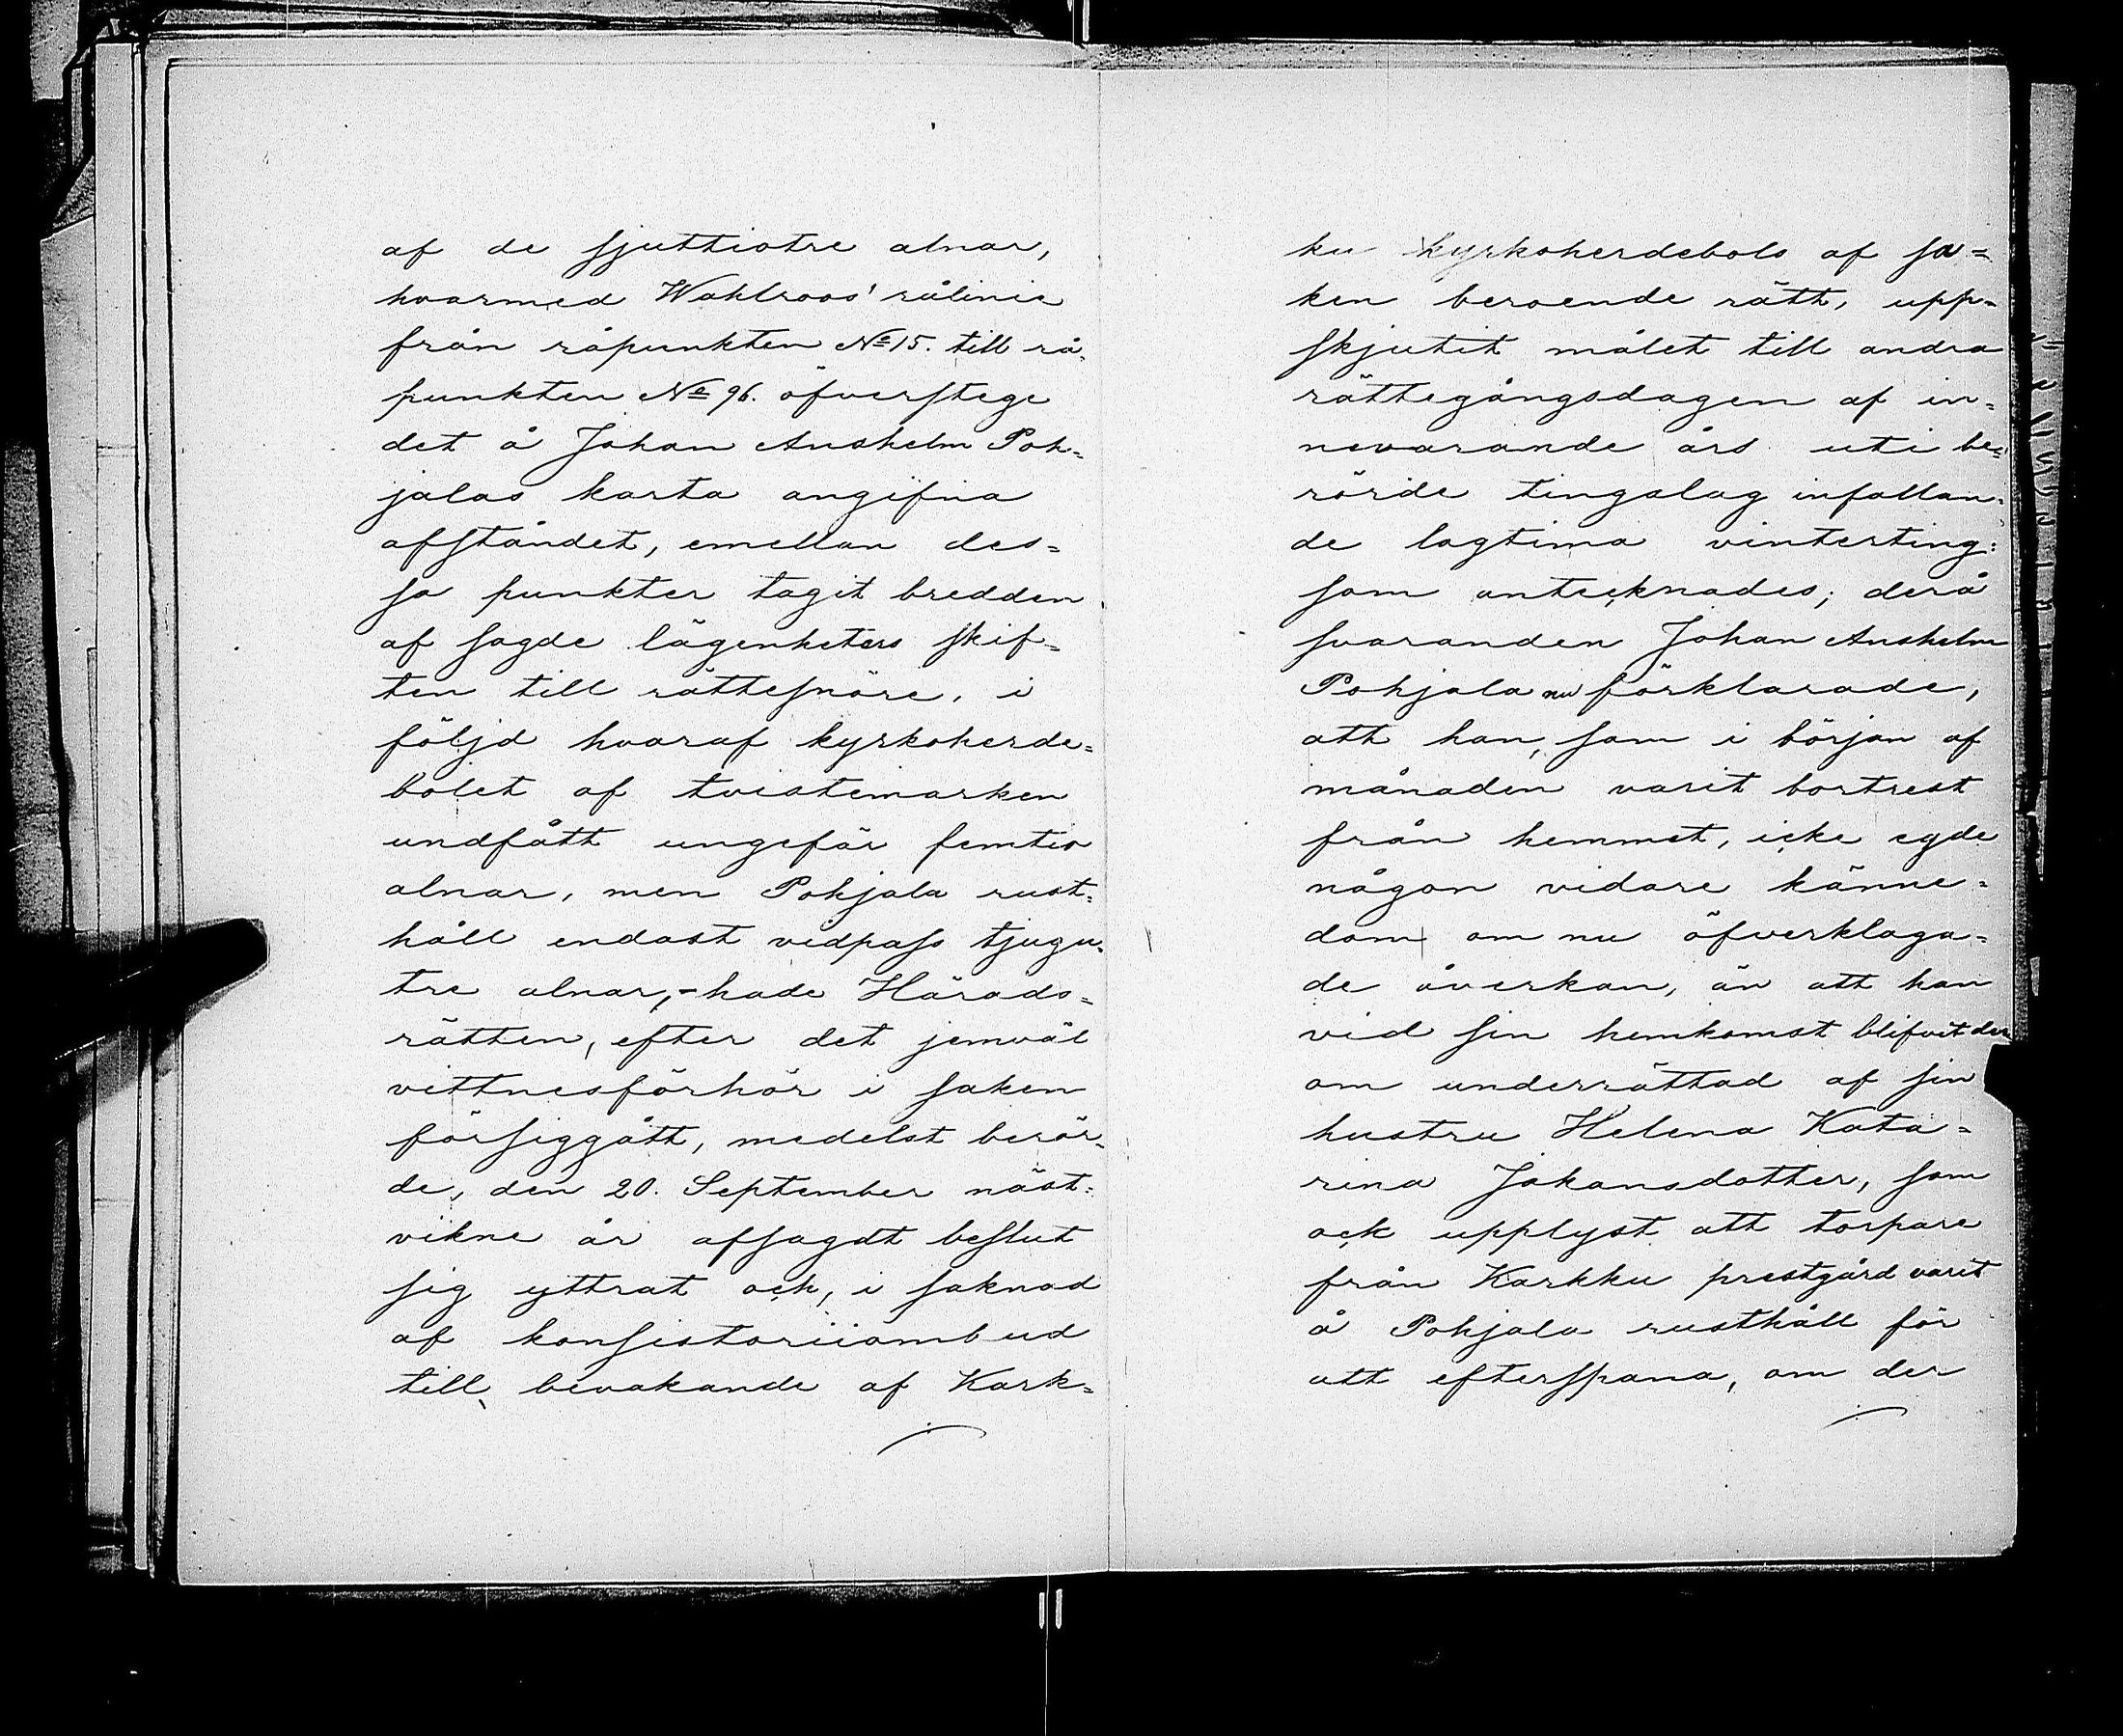 af de sjuttiotre alnar,
hvarmed Wahlroos' rålinie
från råpunkten No 15. till rå-
punkten No 96. öfverstege
det å Johan Anshelm Poh-
jalas karta angifna
afståndet, emellan des-
sa punkter tagit bredden
af sagde lägenheters skif-
ten till rättesnöre, i
följd hvaraf kyrkoherde-
bolet af tvistemarken
undfått ungefär femtio
alnar, men Pohjala rust-
håll endast vidpass tjugu-
tre alnar,- hade Härads-
rätten, efter det jemväl
vittnesförhör i saken
försiggått, medelst berör-
de, den 20. September näst-
vikne år afsagdt beslut
sig yttrat och, i saknad
af konsistoriiombud
till bevakande af Kark-
ku kyrkoherdebols af sa-
ken beroende rätt, upp-
skjutit målet till andra
rättegångsdagen af in-
nevarande års uti be-
rörde tingslag infallan-
de lagtima vinterting:
som antecknades; derå
svaranden Johan Anshelm
Pohjala nu förklarade,
att han, som i början af
månaden varit bortrest
från hemmet, icke egde
någon vidare känne-
dom om nu öfverklaga-
de åverkan, än att han
vid sin hemkomst blifvit der
om underrättad af sin
hustru Helena Kata-
rina Johansdotter, som
ock upplyst att torpare
från Karkku prestgård varit
å Pohjala rusthåll för
att efterspana, om der